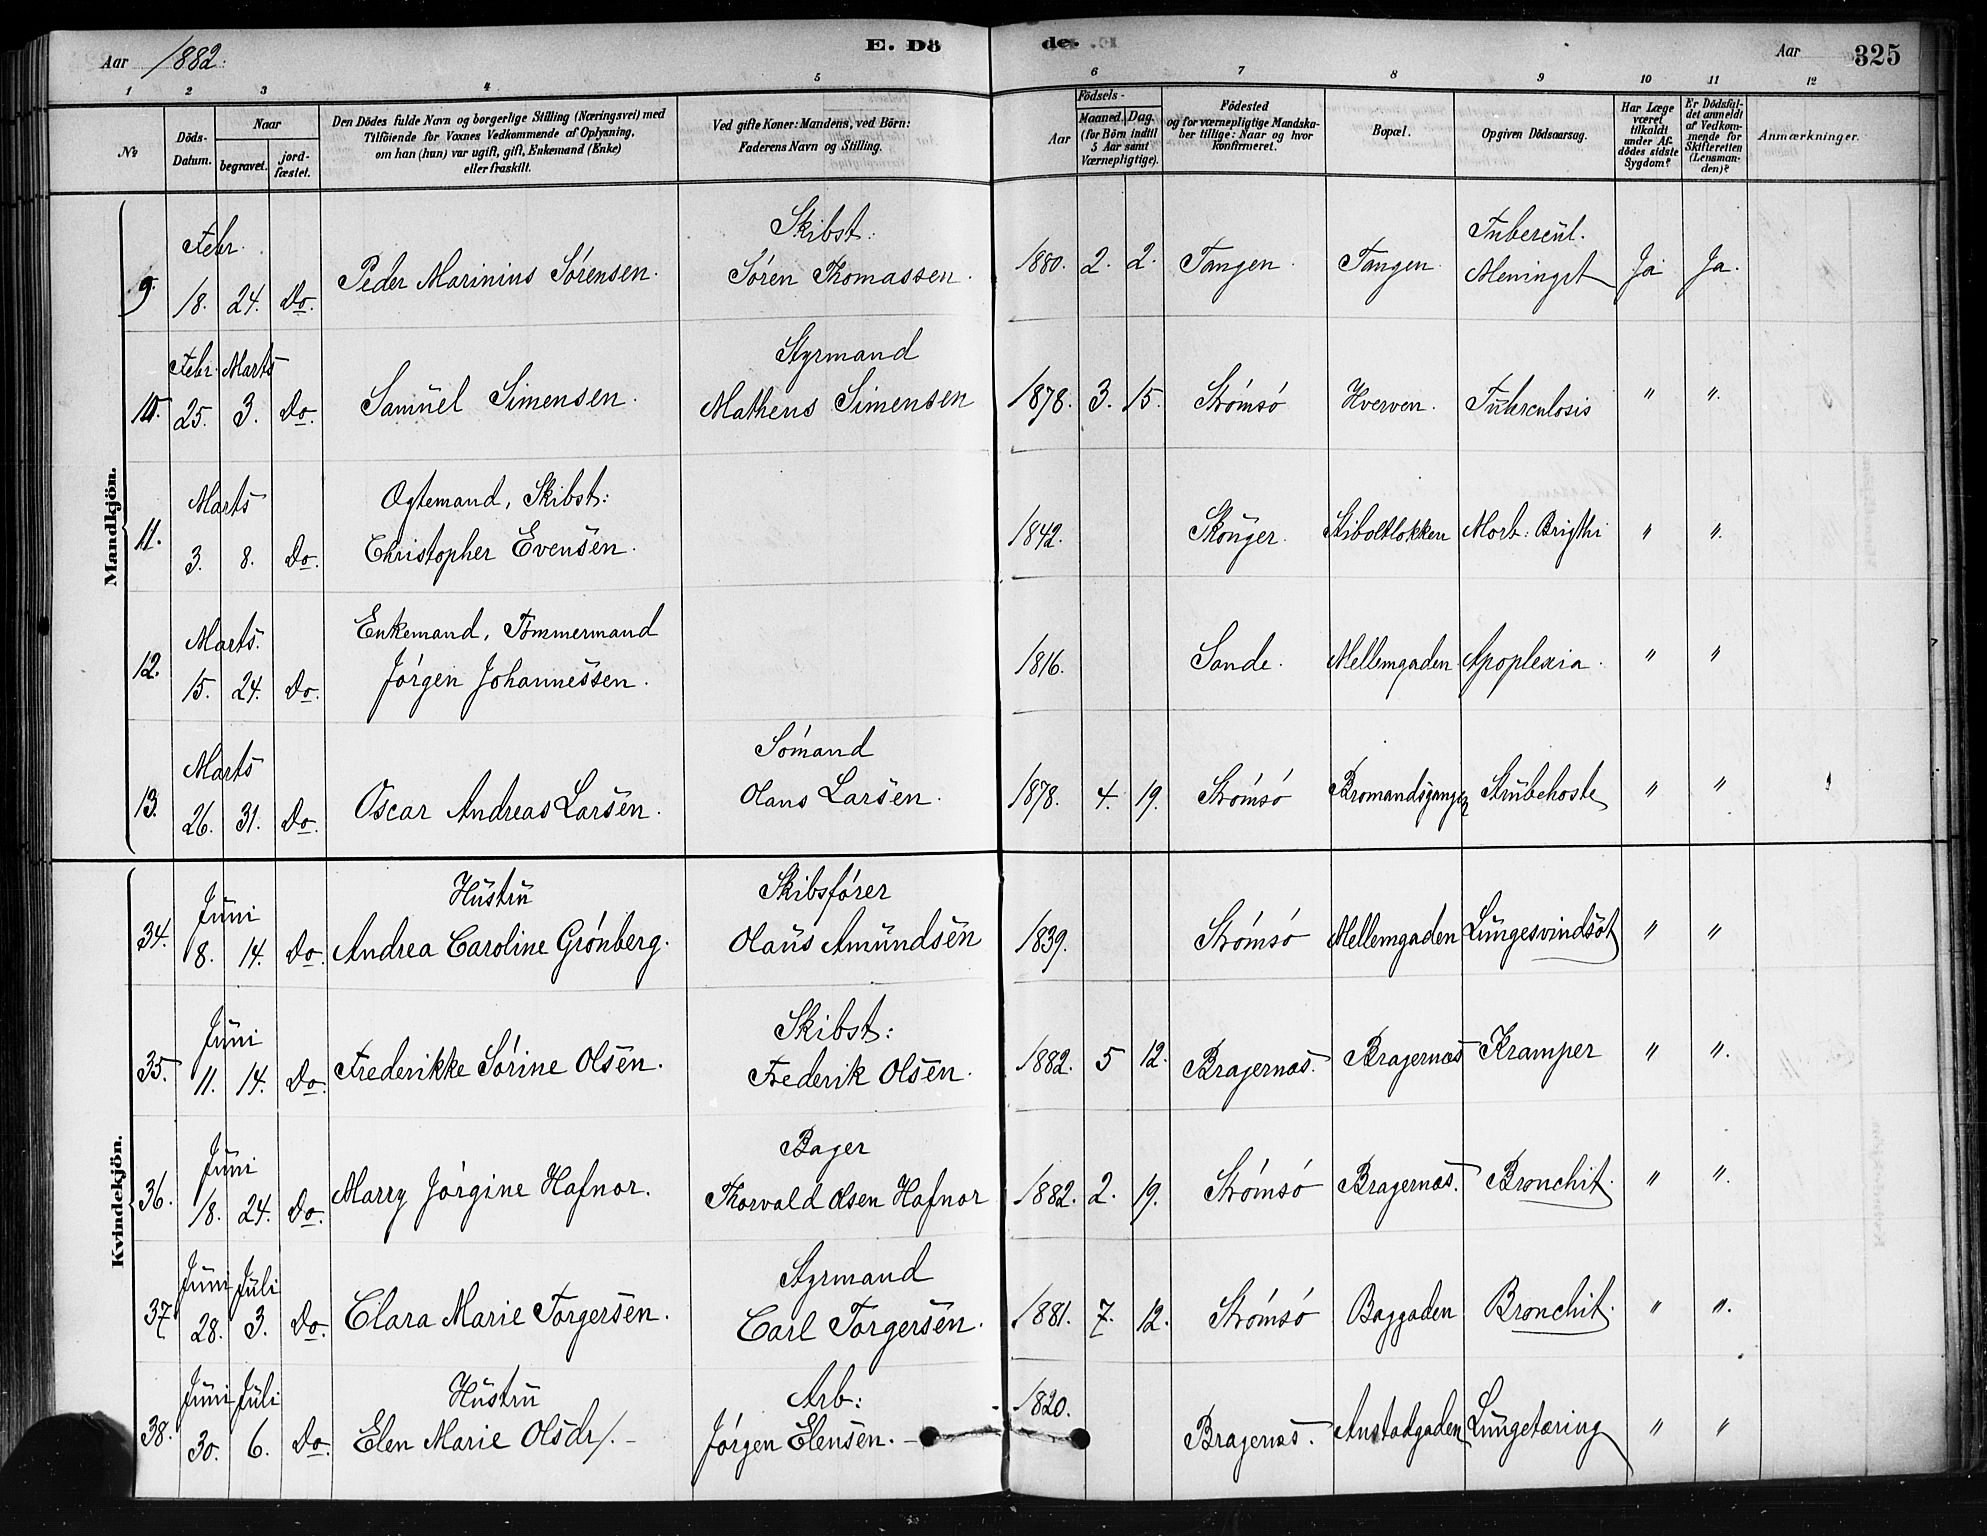 Aar 1882. E. Dö de. Aar 325
1 2 3 4 5 6 7 8 9 10 11 12
No
Döds-Datum.
Naar
begravet.
jord-fæstet.
Den Dödes fulde Navn og borgerlige Stilling (Næringsvei) med Tilföiende for Voxnes Vedkommende af Oplysning, om han (hun) var ugift, gift, Enkemand (Enke) eller fraskilt.
Ved gifte Koner: Mandens, ved Börn: Faderens Navn og Stilling.
Födsels-
Aar
Maaned. Dag.
(for Börn indtil 5 Aar samt Værnepligtige).
Födested
og for værnepligtige Mandskaber tillige: Naar og hvor Konfirmeret.
Bopæl.
Opgiven Dödsaarsag.
Har Læge været tilkaldt under Afdödes sidste Sygdom?
Er Dödsfaldet anmeldt af Vedkommende for Skifteretten (Lensmanden)?
Anmærkninger.
Mandkjön.
Febr. Skibst: Tubercul.
9. 18. 24. Do. Peder Marinius Sørensen. Søren Thomassen. 1880. 2. 2. Tangen. Tangen. Meningit Ja Ja.
Febr. Marts Styrmand
10. 25. 3. Do. Samuel Simensen. Mathens Simensen 1878. 3. 15. Strømsø Hverven. Tuberculosis " ".
Marts Ogtemand, Skibst:
11. 3. 8. Do. Christopher Evensen. 1842. Skouger. Skiboltlokken Morb: Brigthi " ".
Marts. Enkemand, Tømmermand
12. 15. 24. Do. Jørgen Johannessen. 1816. Sande. Mellemgaden Apoplexia. " "
Marts Sømand
13. 26. 31. Do. Oscar Andreas Larsen. Olaus Larsen. 1878. 4. 19. Strømsø Bromandsgangen Strubehoste " "
Kvindekjön.
Juni Hustru Skibsfører
34. 8. 14. Do. Andrea Caroline Grønberg. Olaus Amundsen 1839. Strømsø Mellemgaden Lungesvindsot " "
Juni Skibst:
35. 11. 14. Do. Frederikke Sørine Olsen. Frederik Olsen. 1882. 5 12. Bragernæs. Bragernæs Kramper " ".
Juni Bager
36. 18. 24. Do. Marry Jørgine Hafnor. Thorvald Olsen Hafnor 1882. 2. 19. Strømsø Bragernæs. Bronchit. " ".
Juni Juli Styrmand
37 28. 3. Do. Clara Marie Torgersen. Carl Torgersen. 1881. 7. 12. Strømsø Baggaden Bronchit. " ".
Juni Juli Hustru Arb:
38. 30. 6. Do. Elen Marie Olsdr/. Jørgen Elensen. 1820. Bragernæs. Anstadgaden Lungetæring " "